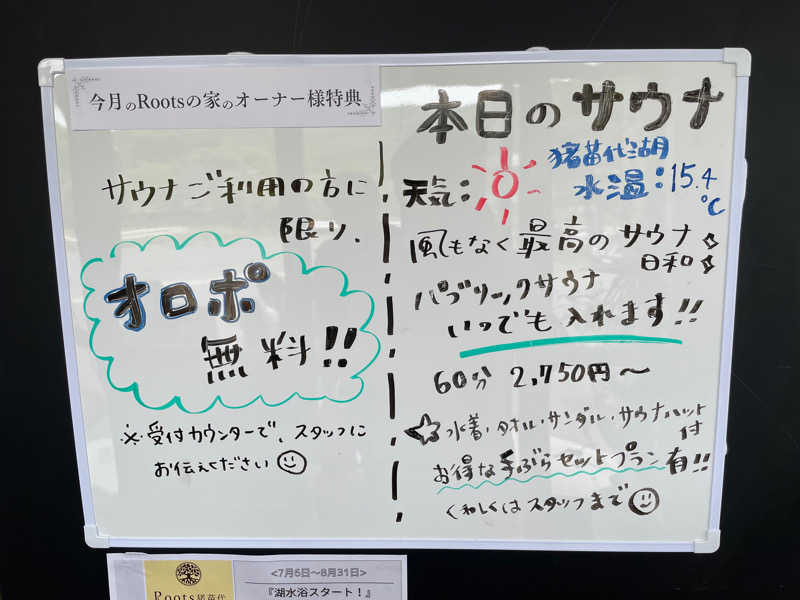 今月のRootsの家のオーナー様特典
サウナご利用の方に
限り、
オロポ
無料!!
※受付カウンターで、スタッフに
お伝えください
本日のサウナ
天気:
猪苗代湖
水温:15.4
℃
風もなく最高のサウナ
日和
パブリックサウナ
いつでも入れます!!
60分 2,750円〜
☆水着・タオル・サンダル・サウナハット
付
お得な手ぶらセットプラン有!!
くわしくはスタッフまで
Roots猪苗代
<7月6日〜8月31日>
『湖水浴スタート!』